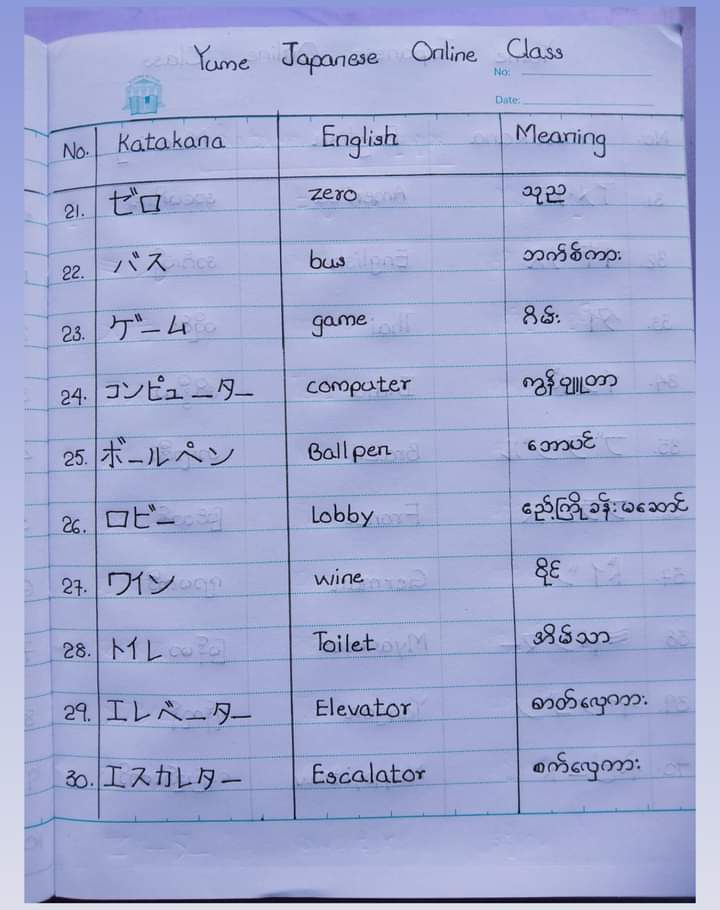 Yume Japanese Online Class
No:
Date:
No. Katakana English Meaning
21. ゼロ zero သုည
22. バス bus ဘက်စ်ကား
23. ゲーム game ဂိမ်း
24. コンピューター computer ကွန်ပျူတာ
25. ボールペン Ballpen ဘောပင်
26. ロビー Lobby ဧည့်ကြိုခန်းမဆောင်
27. ワイン wine ဝိုင်
28. トイレ Toilet အိမ်သာ
29. エレベーター Elevator ဓာတ်လှေကား
30. エスカレター Escalator စက်လှေကား